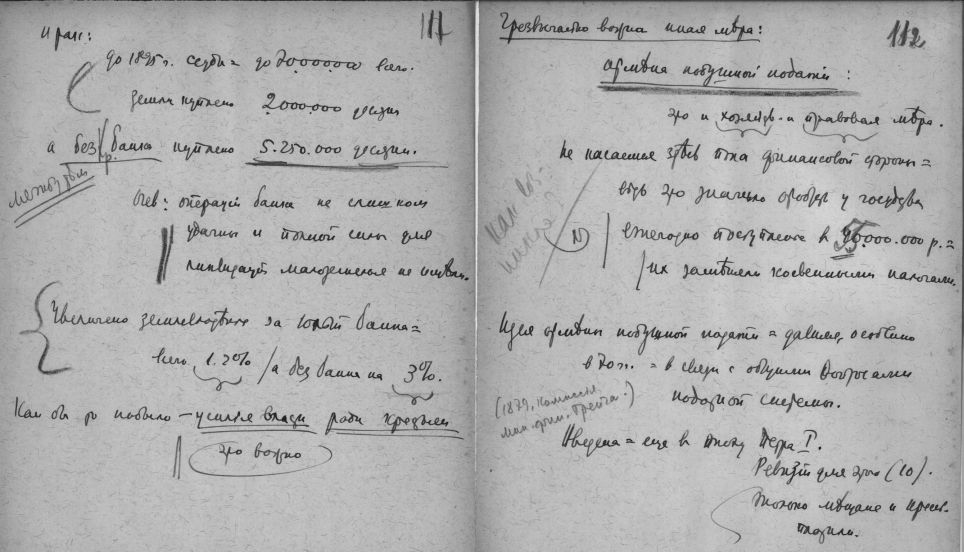 111
и так:
до 1895 г. ссуды = до 70000000 всего.
земли куплено 2000000 десятин
а без банка куплено 5.250.000 десятин.
между тем
очев: операций банка не слишком
удачны и полной силы для
ликвидаций малоземелья не имѣли.
Увеличено землевладѣние за 10 лѣт банка =
всего 1.2% / а без банка на 3%.
Как бы то ни было – усилия власти ради крестьян
это важно
112
Чрезвычайно важна иная мѣра:
отмѣна подушной подати:
это и хозяйств. и правовая мѣра.
Не касаемся здѣсь пока финансовой стороны =
вѣдь это значило отобрать у государства
ежегодно поступление в 55.000.000 р. =
их замѣнили косвенными налогами.
Идея отмѣны подушной подати = давняя, особенно
в 70 х. = в связи с общими вопросами
податной системы.
(1879, Комиссия
Введена = еще в эпоху Петра I.
Ревизiи для этого (10).
Только мѣщане и крест.
платили.